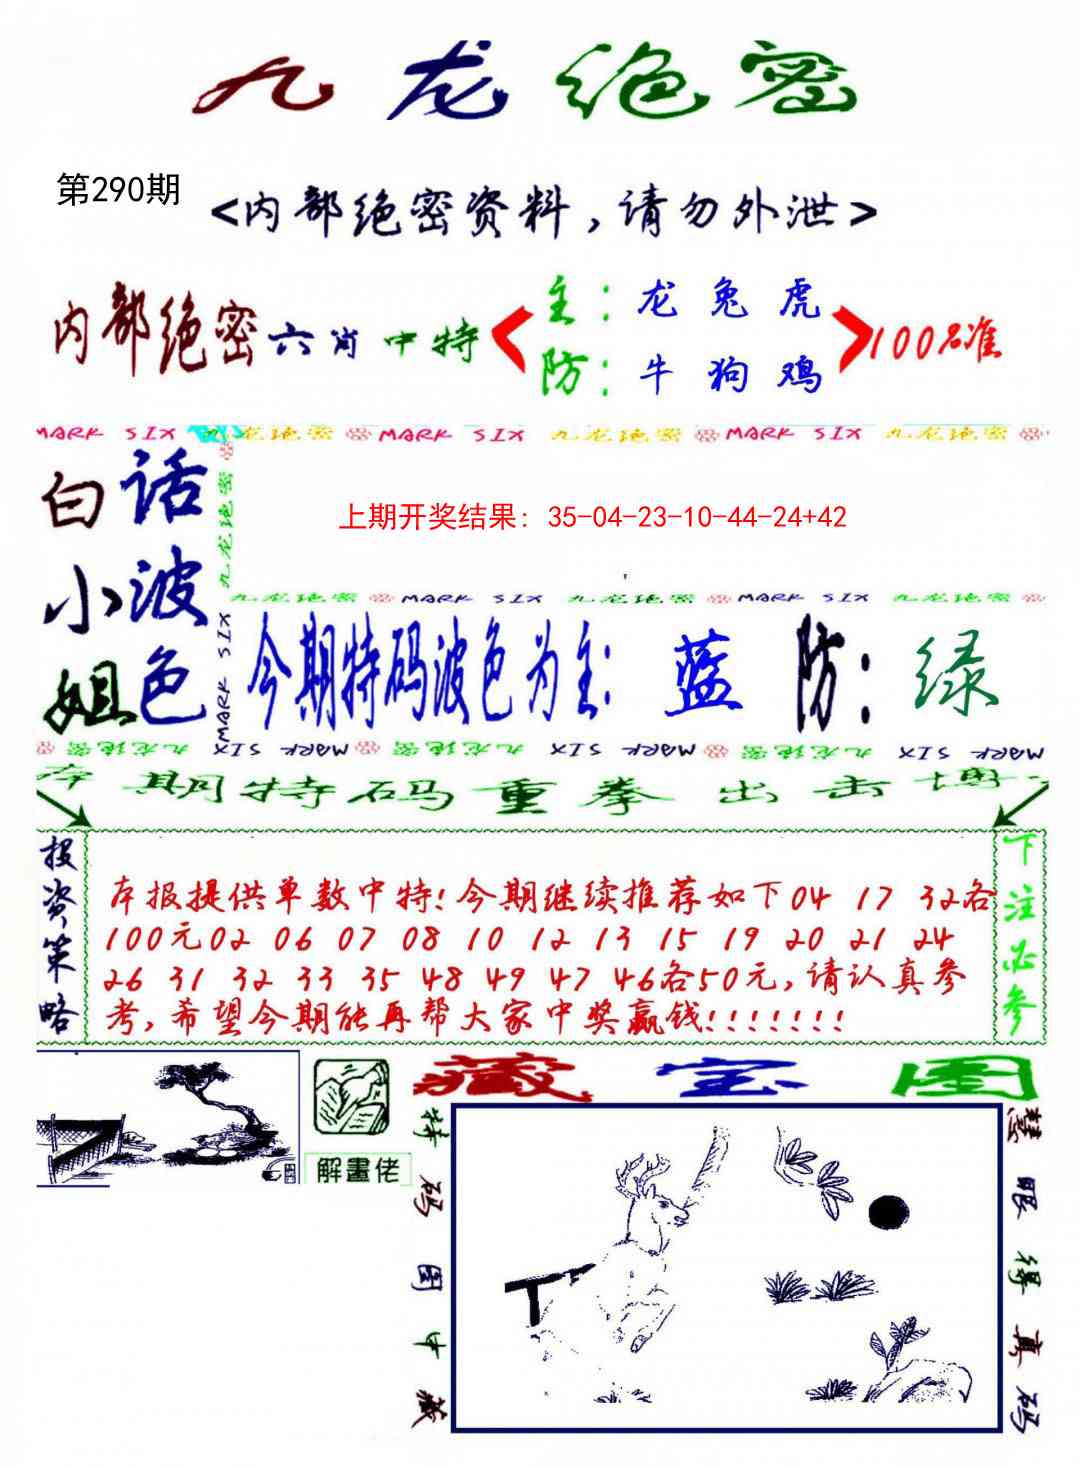 九龙绝密
第290期
<内部绝密资料，请勿外泄>
内部绝密六肖中特
主：龙 兔 虎
防：牛 狗 鸡
100%准
MARK SIX 九龙绝密 MARK SIX 九龙绝密 MARK SIX 九龙绝密
白小姐
话波色
九龙绝密
MARK SIX
上期开奖结果：35-04-23-10-44-24+42
九龙绝密 MARK SIX 九龙绝密 MARK SIX 九龙绝密
今期特码波色为主：蓝 防：绿
九龙绝密 MARK SIX 九龙绝密 MARK SIX 九龙绝密 MARK SIX
本期特码重拳出击博
投资策略
本报提供单数中特!今期继续推荐如下04 17 32各
100元02 06 07 08 10 12 13 15 19 20 21 24
26 31 32 33 35 48 49 47 46各50元,请认真参
考,希望今期能再帮大家中奖赢钱!!!!!!!
下注必参
解畫佬
藏宝图
特码图中藏
慧眼得真码